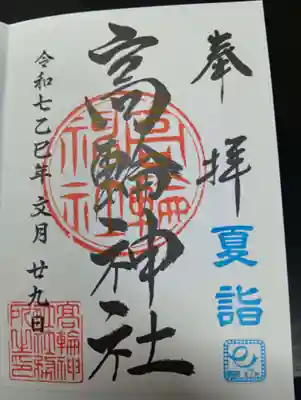 奉拝
夏詣
高輪神社
高輪神社
令和七乙巳年 文月 廿九日
高輪神社社務所之印